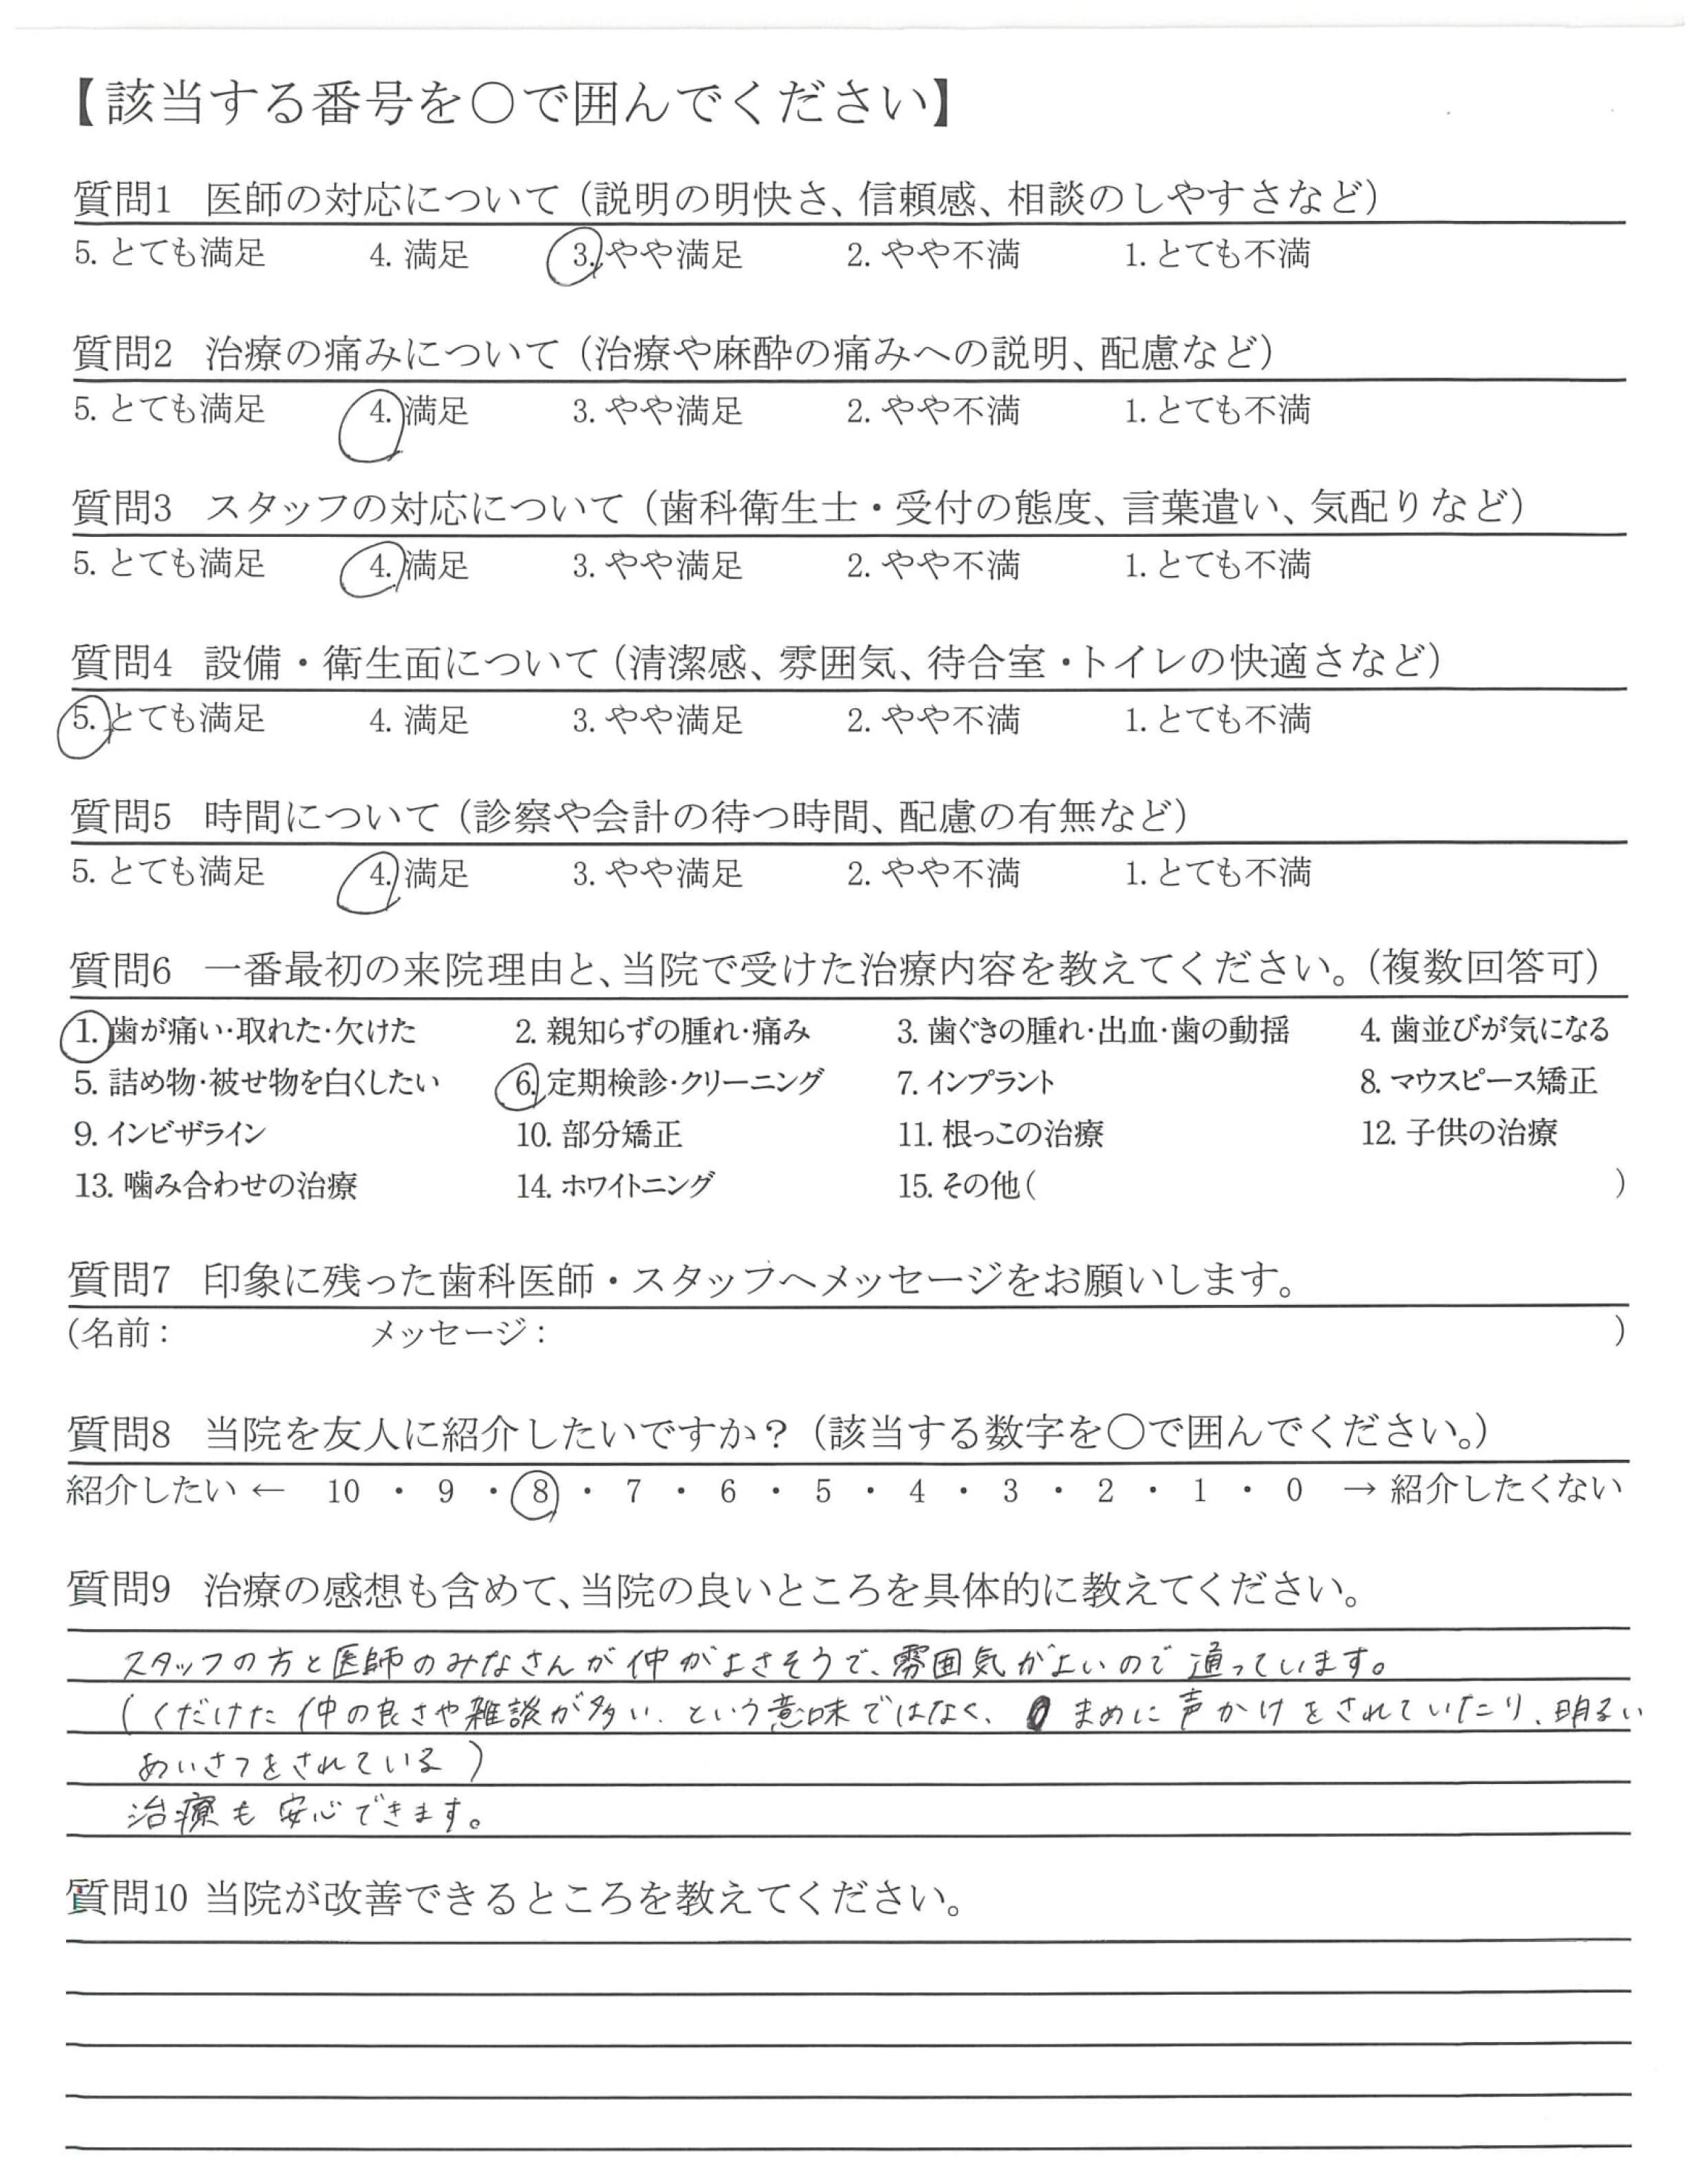 【該当する番号を〇で囲んでください】
質問1 医師の対応について（説明の明快さ、信頼感、相談のしやすさなど）
5. とても満足 4. 満足 3. やや満足 2. やや不満 1. とても不満
質問2 治療の痛みについて（治療や麻酔の痛みへの説明、配慮など）
5. とても満足 4. 満足 3. やや満足 2. やや不満 1. とても不満
質問3 スタッフの対応について（歯科衛生士・受付の態度、言葉遣い、気配りなど）
5. とても満足 4. 満足 3. やや満足 2. やや不満 1. とても不満
質問4 設備・衛生面について（清潔感、雰囲気、待合室・トイレの快適さなど）
5. とても満足 4. 満足 3. やや満足 2. やや不満 1. とても不満
質問5 時間について（診察や会計の待つ時間、配慮の有無など）
5. とても満足 4. 満足 3. やや満足 2. やや不満 1. とても不満
質問6 一番最初の来院理由と、当院で受けた治療内容を教えてください。（複数回答可）
1. 歯が痛い・取れた・欠けた 2. 親知らずの腫れ・痛み 3. 歯ぐきの腫れ・出血・歯の動揺 4. 歯並びが気になる
5. 詰め物・被せ物を白くしたい 6. 定期検診・クリーニング 7. インプラント 8. マウスピース矯正
9. インビザライン 10. 部分矯正 11. 根っこの治療 12. 子供の治療
13. 噛み合わせの治療 14. ホワイトニング 15. その他（ ）
質問7 印象に残った歯科医師・スタッフへメッセージをお願いします。
（名前： メッセージ： ）
質問8 当院を友人に紹介したいですか？（該当する数字を〇で囲んでください。）
紹介したい ← 10 ・ 9 ・ 8 ・ 7 ・ 6 ・ 5 ・ 4 ・ 3 ・ 2 ・ 1 ・ 0 → 紹介したくない
質問9 治療の感想も含めて、当院の良いところを具体的に教えてください。
スタッフの方と医師のみなさんが仲がよさそうで、雰囲気がよいので通っています。
（くだけた仲の良さや雑談が多い、という意味ではなく、まめに声かけをされていたり、明るい
あいさつをされている）
治療も安心できます。
質問10 当院が改善できるところを教えてください。